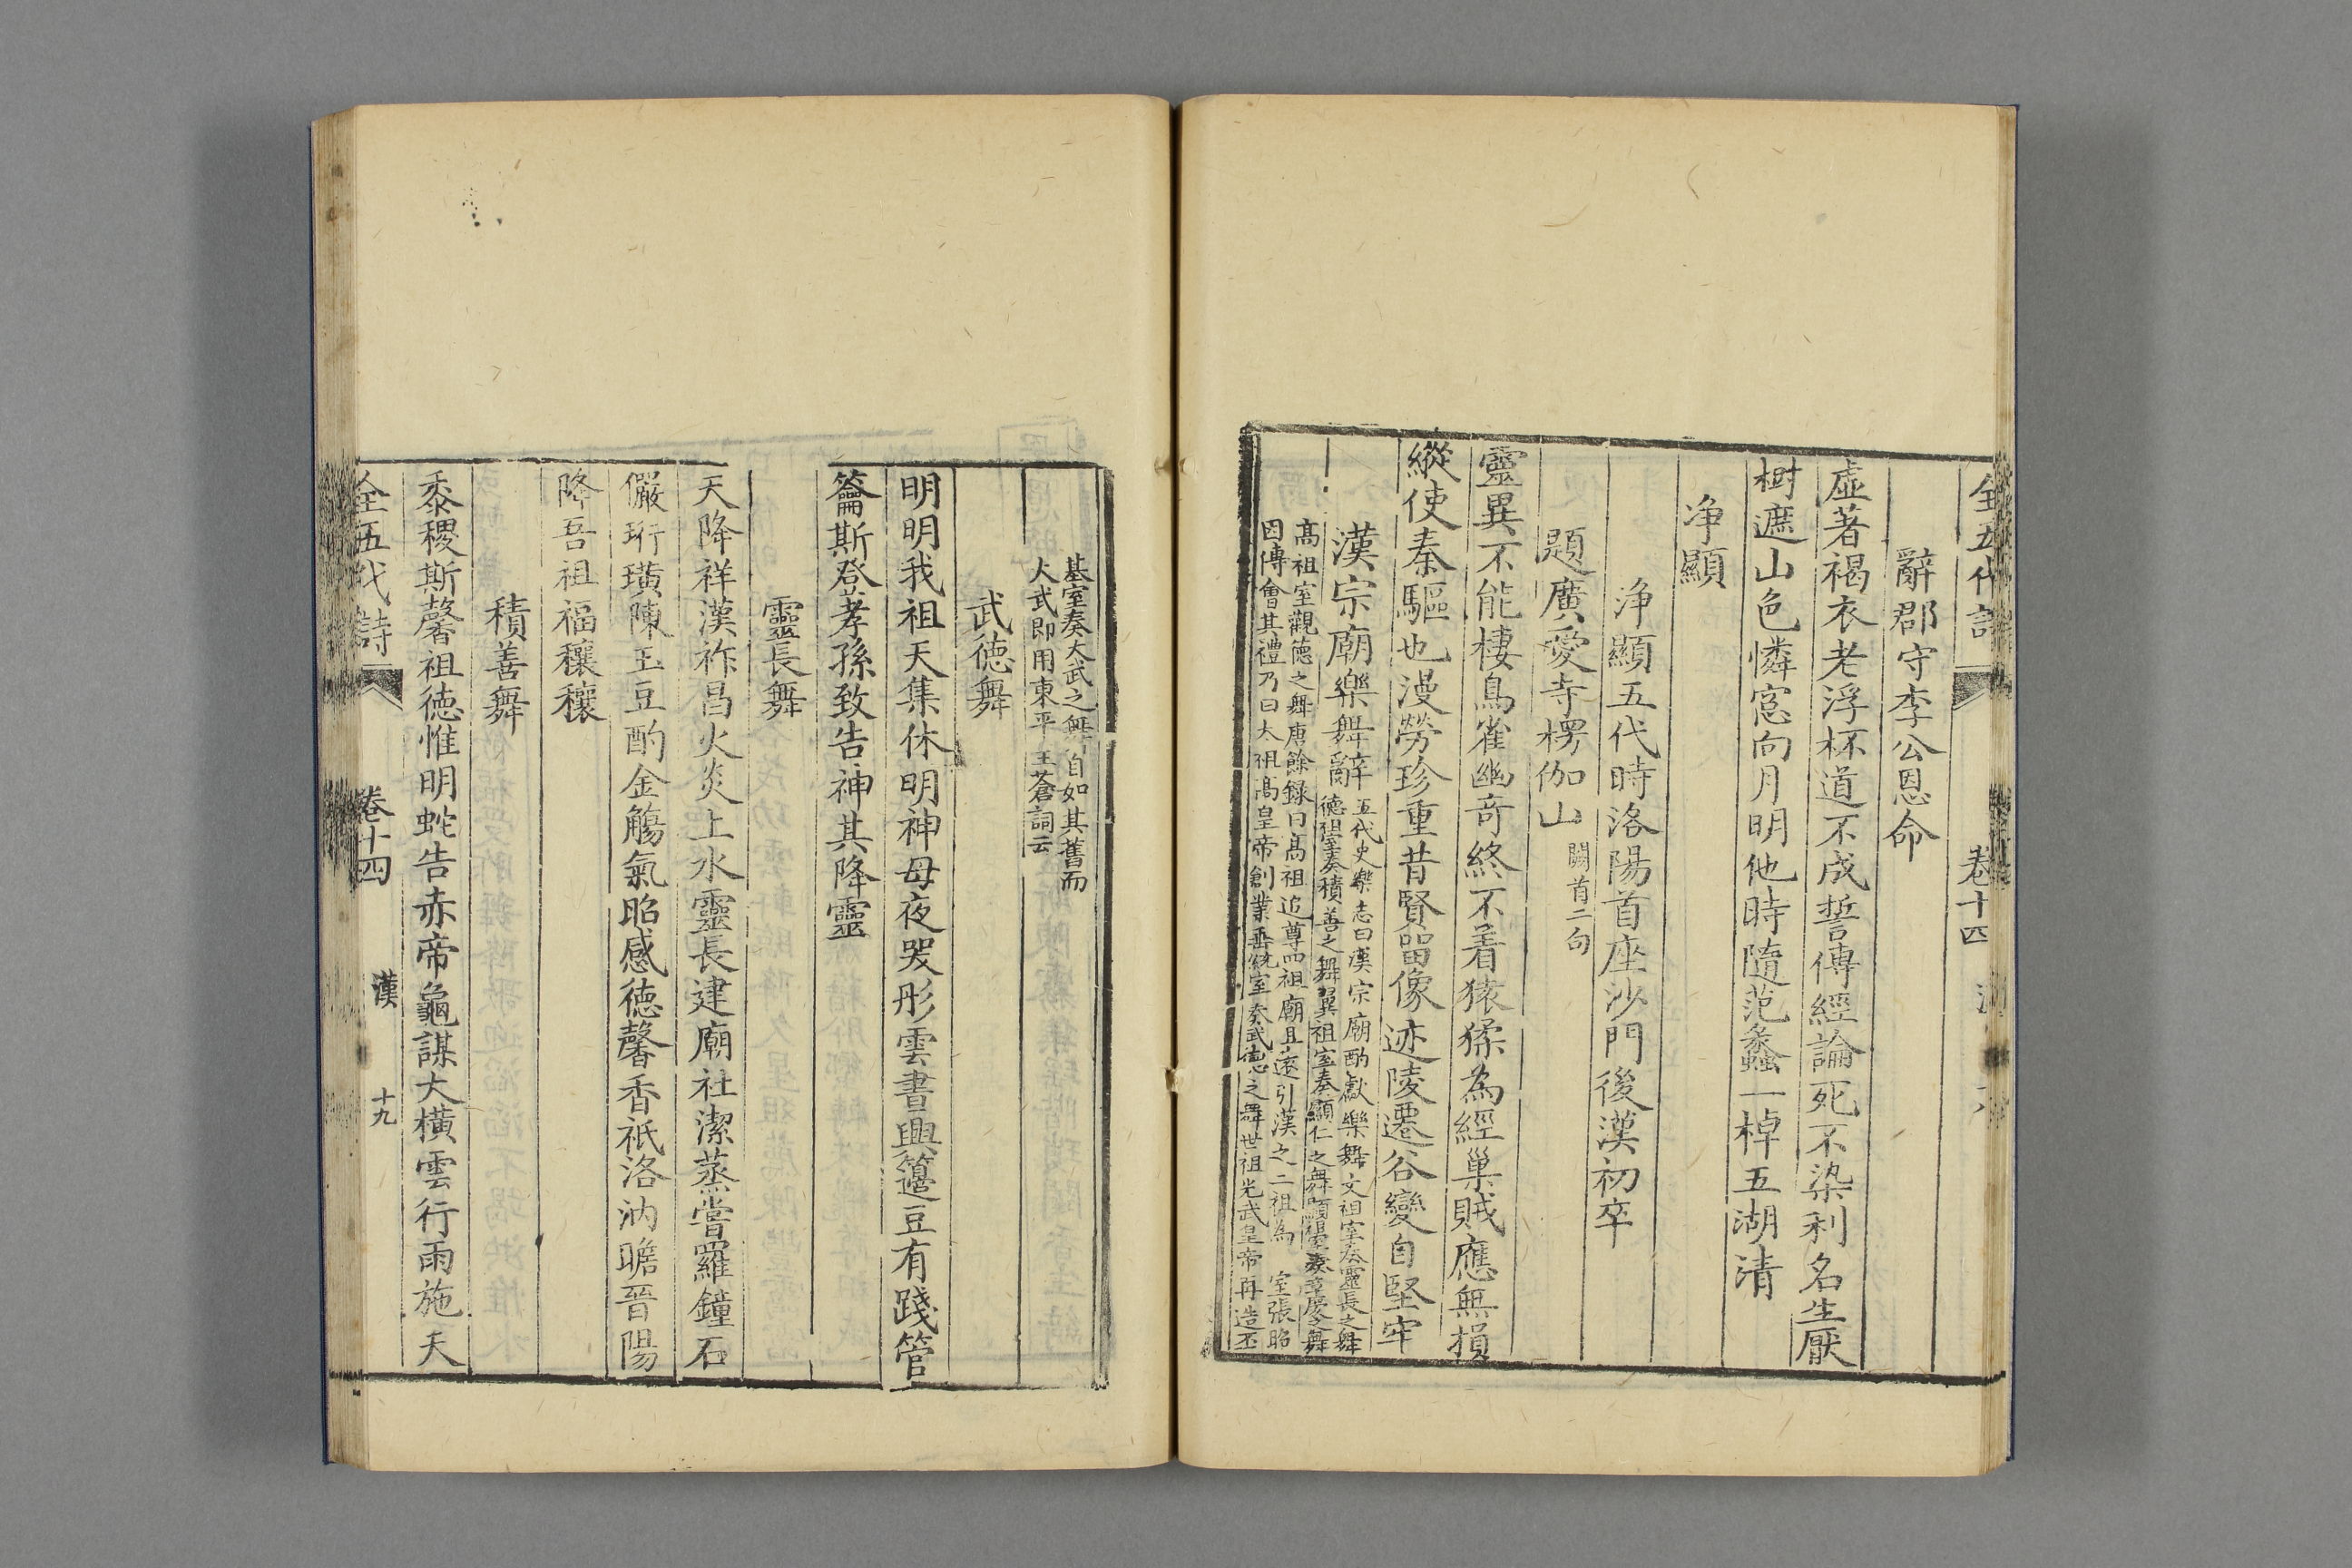 全五代詩 卷十四
辭郡守李公恩命
虛著褐衣老浮杯道不成誓傳經論死不染利名生厭
樹遮山色憐窓向月明他時隨范蠡一棹五湖清
淨顯
淨顯五代時洛陽首座沙門後漢初卒
題廣愛寺楞伽山 闕首二句
靈異不能棲鳥雀幽奇終不着猿猱為經巢賊應無損
縱使秦驅也漫勞珍重昔賢留像迹陵遷谷變自堅牢
漢宗廟樂舞辭 五代史樂志曰漢宗廟酌獻樂舞文祖室奏靈長之舞
德祖室奏積善之舞翼祖室奏顯仁之舞顯祖室奏章慶之舞
高祖室觀德之舞唐餘錄曰高祖追尊四祖廟且遠引漢之二祖為 室張昭
因傅會其禮乃曰太祖高皇帝創業垂統室奏武德之舞世祖光武皇帝再造丕
基室奏大武之舞自如其舊而
大武即用東平王蒼詞云
武德舞
明明我祖天集休明神母夜哭彤雲晝興籩豆有踐管
籥斯登孝孫致告神其降靈
靈長舞
天降祥漢祚昌火炎上水靈長建廟社潔蒸嘗羅鐘石
儼珩璜陳玉豆酌金觴氣昭感德馨香祇洛汭瞻晉陽
降吾祖福穰穰
積善舞
黍稷斯馨祖德惟明蛇告赤帝龜謀大橫雲行雨施天
全五代詩 卷十四 漢 十九